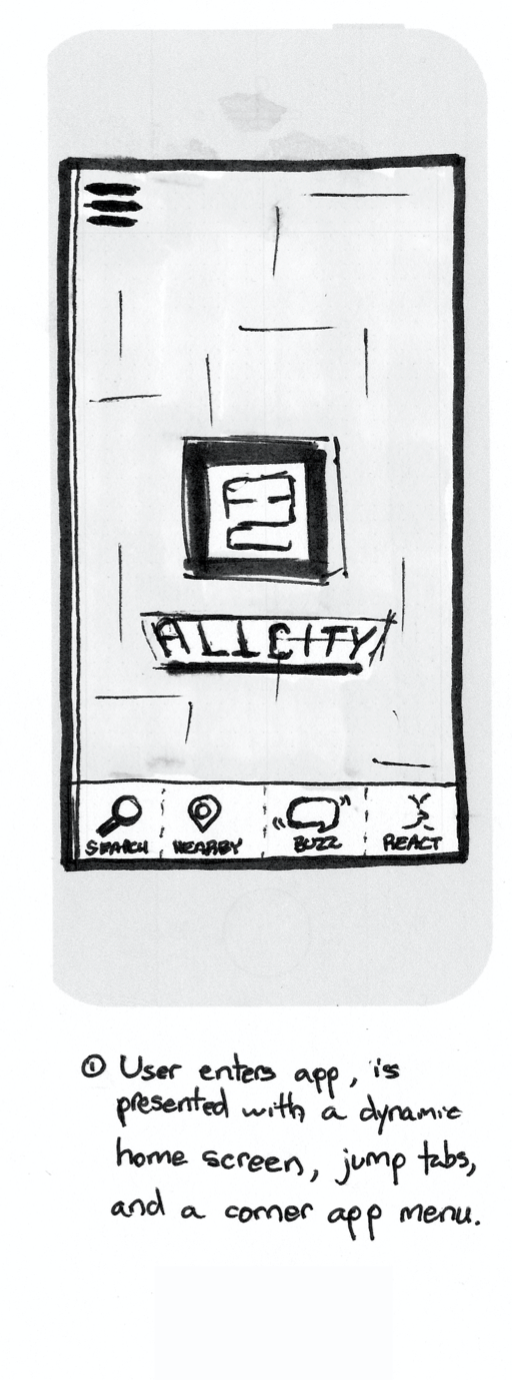 ALLCITY
SEARCH
NEARBY
BUZZ
REACT
① User enters app, is
presented with a dynamic
home screen, jump tabs,
and a corner app menu.